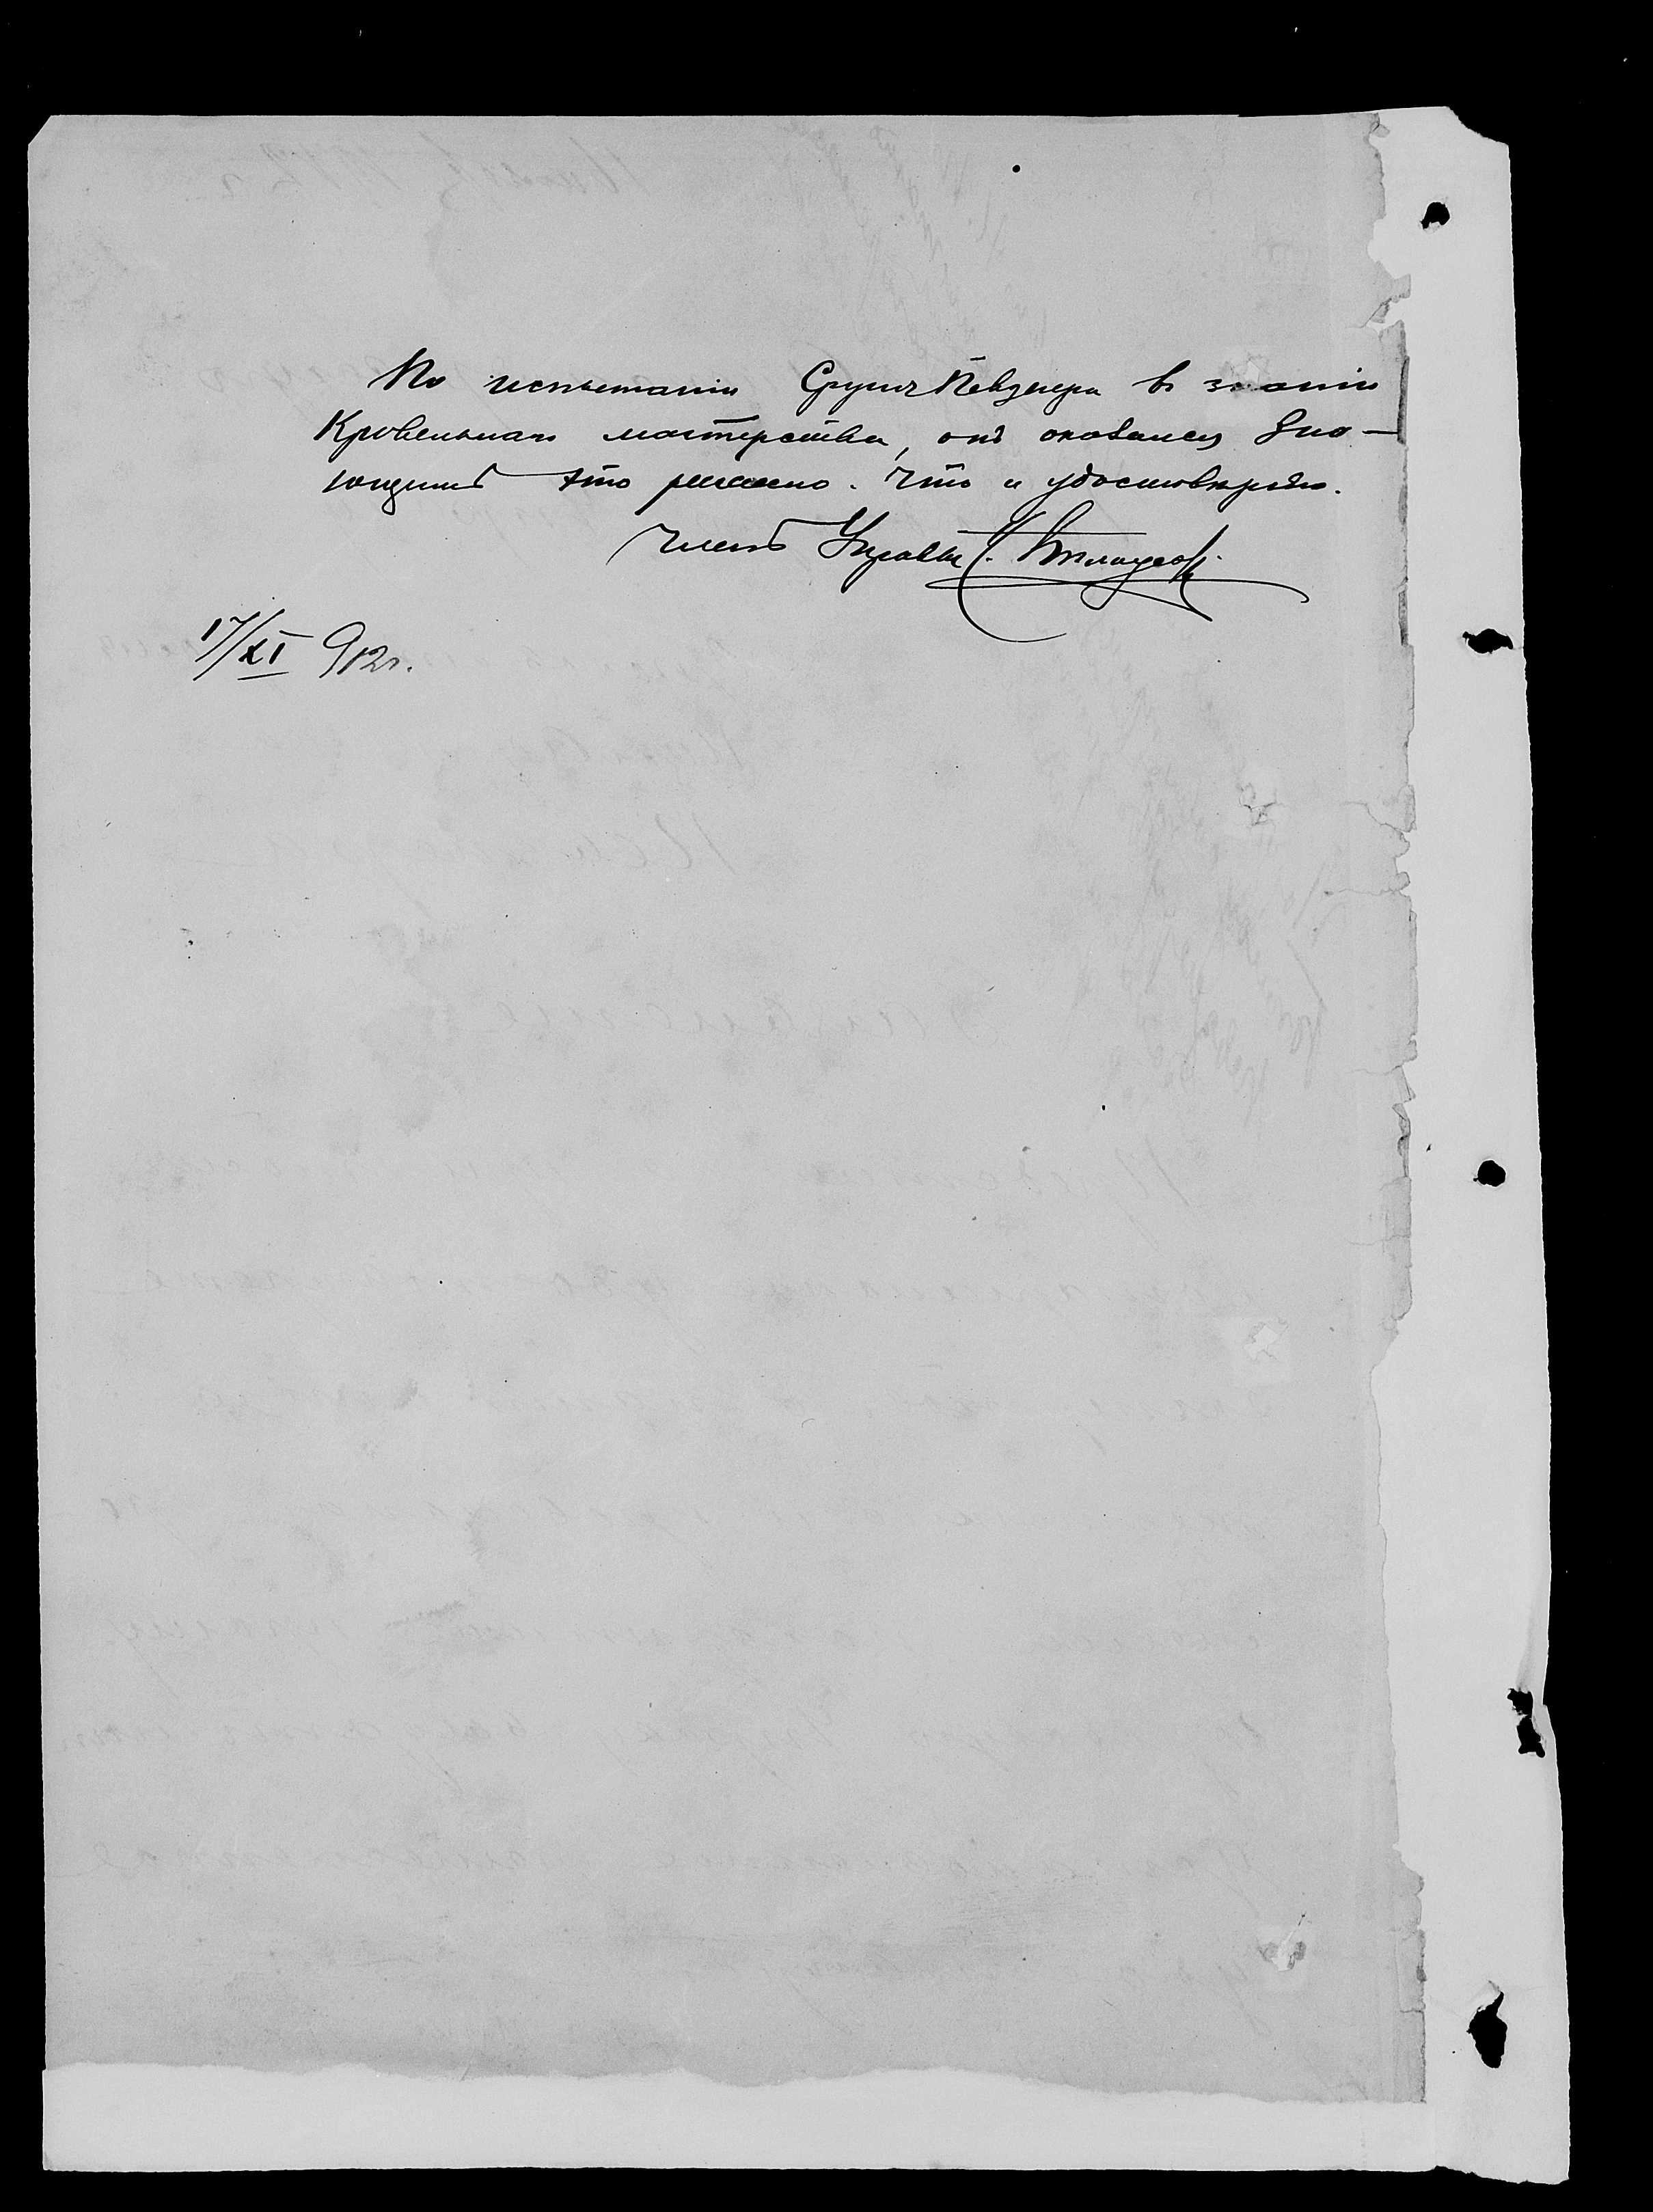 По испытанiи Сруля Певзнера въ знанiи
Кровельнаго мастерства, онъ оказался знаю-
ющимъ это ремесло. Что и удостовѣряю.
Членъ Управы
17/XI 912г.